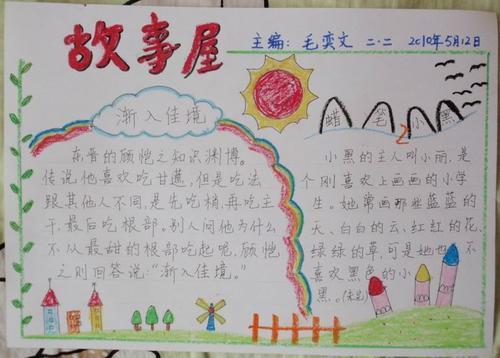 故事屋
主编：毛奕文 二.二 2010年5月12日
渐入佳境
东晋的顾恺之知识渊博。
传说他喜欢吃甘蔗，但是吃法
跟其他人不同，是先吃梢，再吃主
干，最后吃根部。别人问他为什么
不从最甜的根部吃起呢，顾恺
之则回答说："渐入佳境。"
蜡笔小黑
2
小黑的主人叫小丽，是
个刚喜欢上画画的小学
生。她常画那些蓝蓝的
天、白白的云、红红的花、
绿绿的草，可是她也不
喜欢黑色的小
黑。(未完)